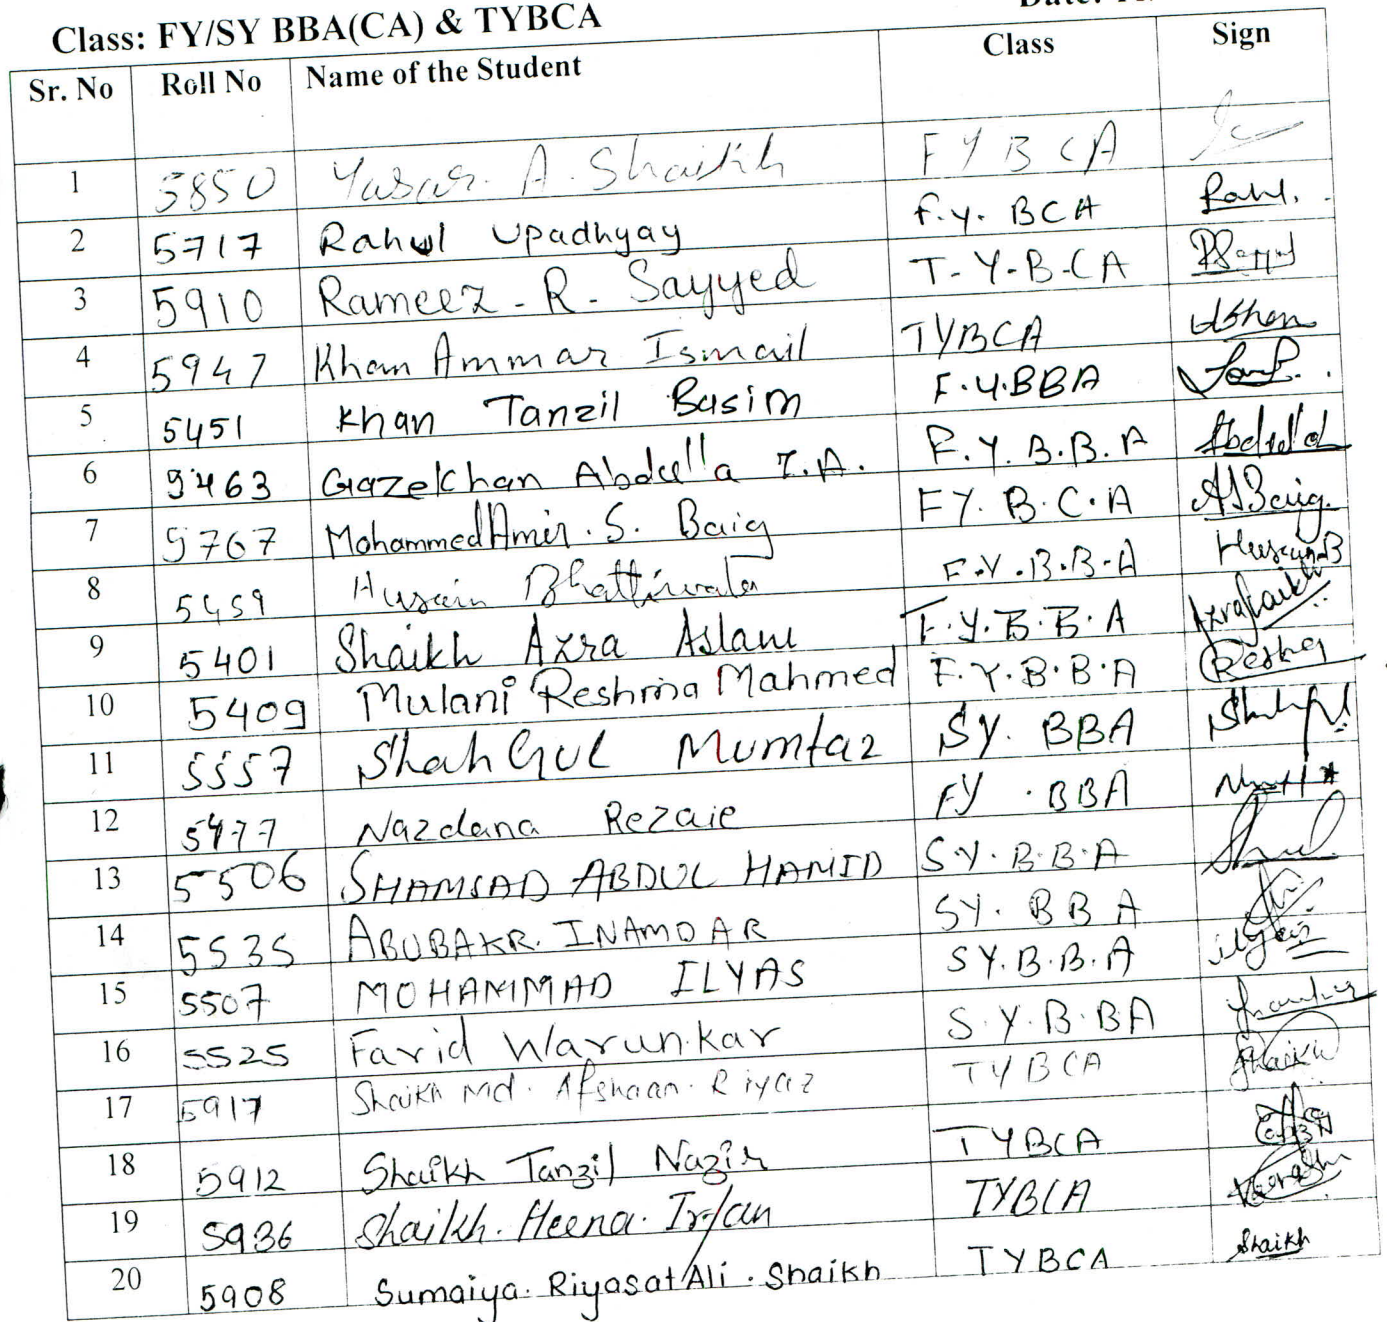 Class: FY/SY BBA(CA) & TYBCA
Sr. No Roll No Name of the Student Class Sign
1 5850 Yasar. A. Shaikh F Y B C A
2 5717 Rahul Upadhyay F.Y. BCA Rahul.
3 5910 Rameez - R. Sayyed T-Y-B-CA RSayyed
4 5947 Khan Ammar Ismail TYBCA
5 5451 Khan Tanzil Basim F.Y.BBA
6 5463 Gazekhan Abdulla Z.A. F.Y.B.B.A Abdullah
7 5767 MohammedAmir.S. Baig FY.B.C.A ASBaig.
8 5459 Husain Bhattiwala F.Y.B.B.A Husain.B
9 5401 Shaikh Azra Aslam F.Y.B.B.A AzraShaikh
10 5409 Mulani Reshma Mahmed F.Y.B.B.A Reshma
11 5557 Shah Gul Mumtaz SY. BBA
12 5477 Nazdana Rezaie FY . BBA
13 5506 SHAMSAD ABDUL HAMID S.Y.B.B.A
14 5535 ABUBAKR. INAMDAR SY. BBA
15 5507 MOHAMMAD ILYAS SY.B.B.A ilyas
16 5525 Farid Warunkar S.Y.B.BA
17 5917 Shaikh Md. Afshaan. Riyaz TYBCA Shaikh
18 5912 Shaikh Tanzil Nazir TYBCA
19 5936 Shaikh. Heena. Irfan TYBCA
20 5908 Sumaiya. Riyasat Ali . Shaikh TYBCA Shaikh